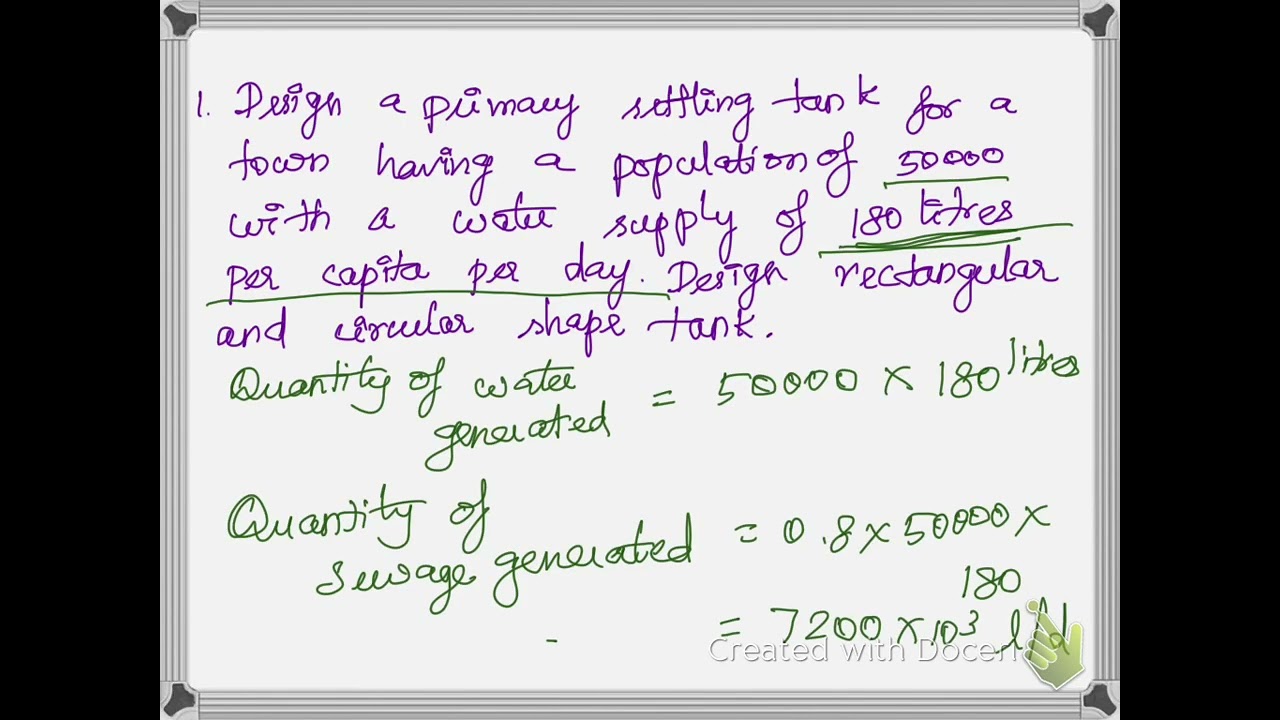 1. Design a primary settling tank for a
town having a population of 50000
with a water supply of 180 litres
per capita per day. Design rectangular
and circular shape tank.
Quantity of water = 50000 × 180 litres
generated
Quantity of
sewage generated = 0.8 × 50000 ×
180
= 7200 × 10³ l/d
Created with Doceri